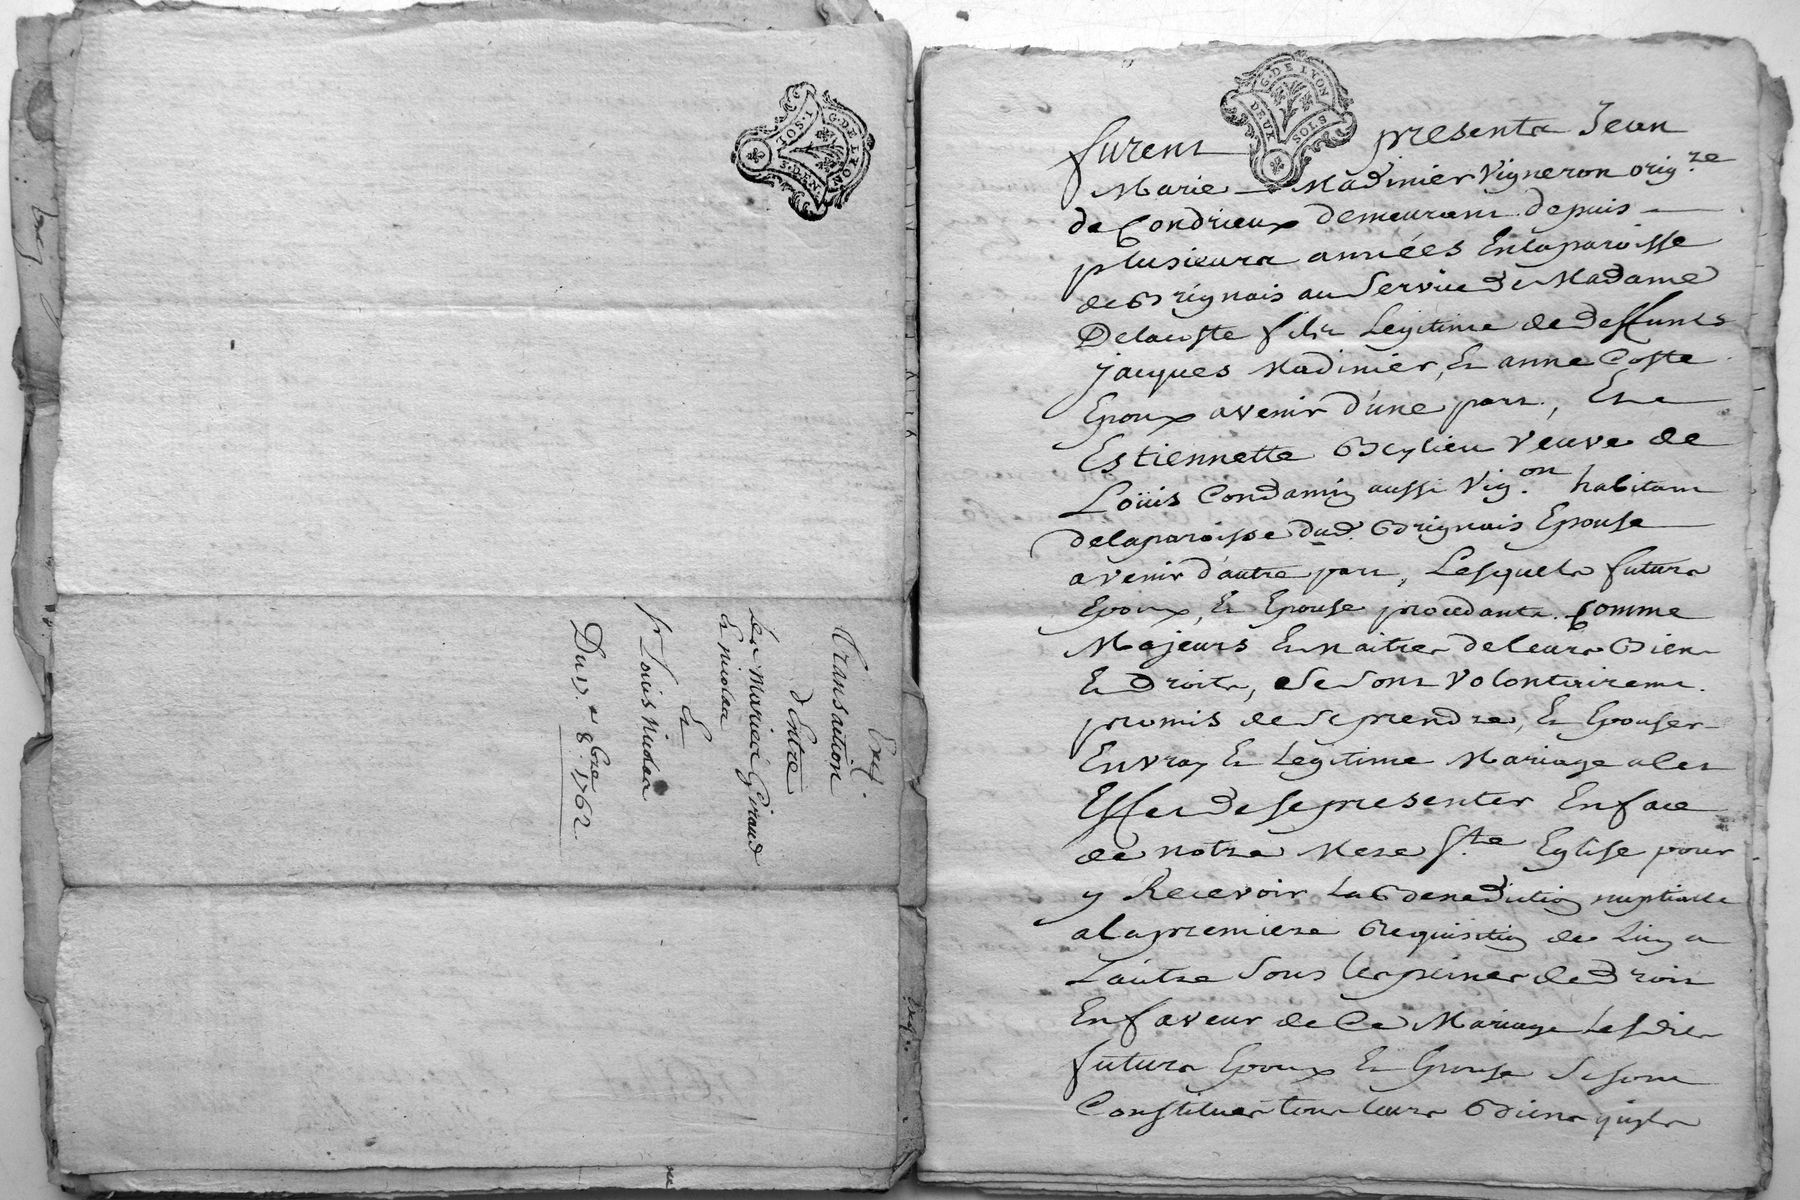 G.DE LYON
1.SOL
5.DEN
Exp.
Transaction
d'Entre
les Mariée Giraud
& nicolas
Et
sr Louis Nicolas
Du 17.e 8bre 1762.
G.DE LYON
DEUX SOLS
furent presents Jean
Marie Madinier Vigneron orig.re
de Condrieux demeurant depuis
plusieurs années Enlaparoisse
de Brignais au Service de Madame
Delacoste fils Legitime de deffunts
jacques Madinier, Et anne Coste
Epoux avenir d'une part, Et
Estiennette Beylieu veuve de
Loüis Condamin aussi Vig.on habitant
delaparoisse dud. Brignais Epouse
avenir d'autre part, Lesquels futurs
Epoux, Et Epouse procedants Comme
Majeurs Et maitres deleurs Biens
Et Droits, se sont Volontairemt.
promis de Se prendre, Et Epouser
En vray Et Legitime Mariage a Cet
Effet de se presenter En face
de notre Mere Ste Eglise pour
y Recevoir La Benediction nuptialle
alapremiere Requisition de Lun a
Lautre Sous les peines de Droit
En faveur de Ce Mariage Lesdits
futurs Epoux Et Epouse Se sont
Constitués tous leurs Biens quils